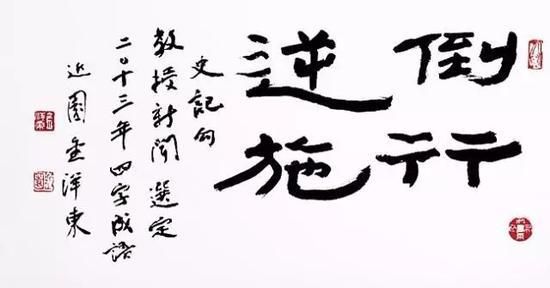 倒行
逆施
史記句
教授新聞 選定
二〇十三年 四字成語
近園 金洋東